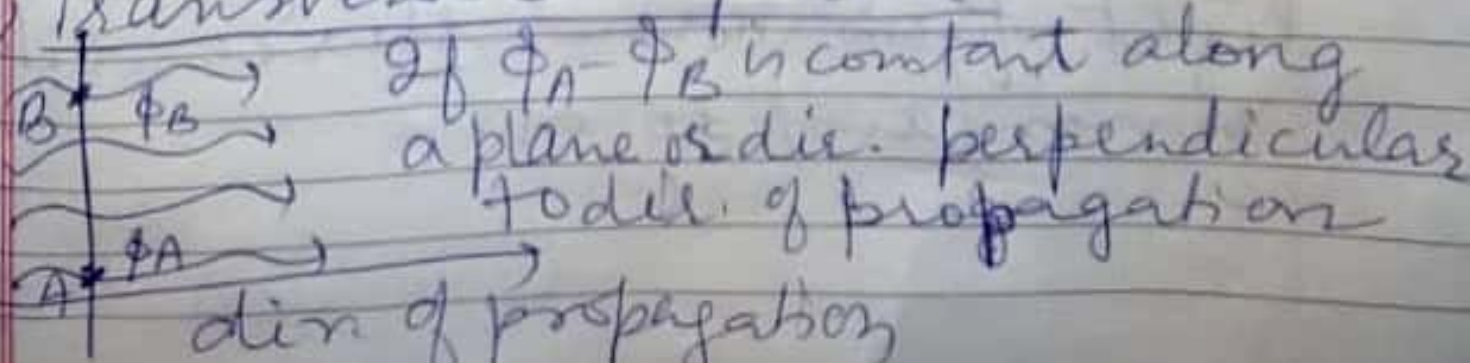 If ϕA - ϕB is constant along
B ϕB
a plane or dir. perpendicular
to dir. of propagation
ϕA
A
dirn of propagation